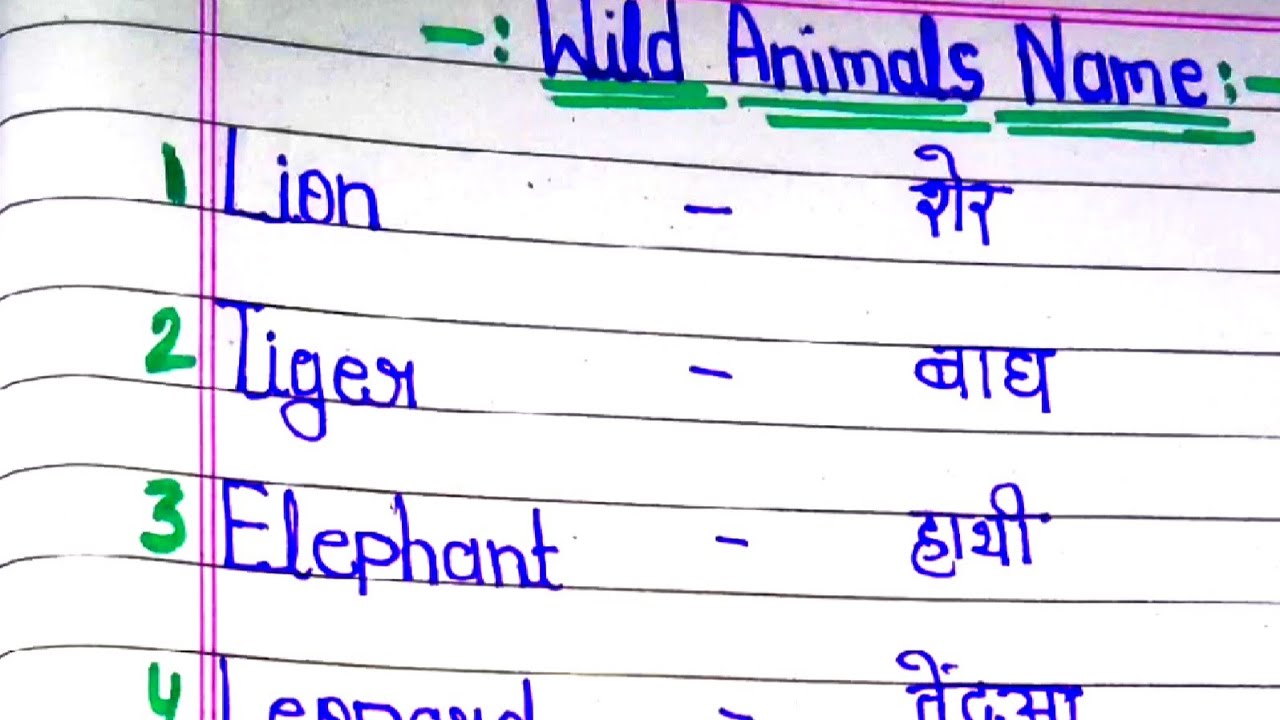 -: Wild Animals Name :-
1 Lion - शेर
2 Tiger - बाघ
3 Elephant - हाथी
4 Leopard -